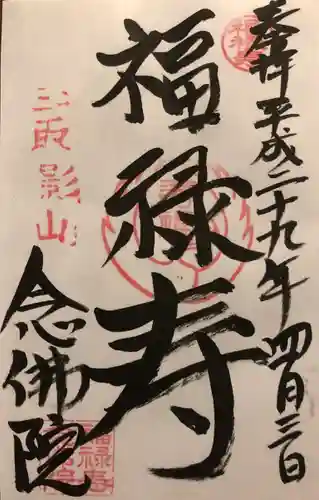 奉拝 平成二十九年四月三日
福禄寿
最影山
念佛院
福禄寿